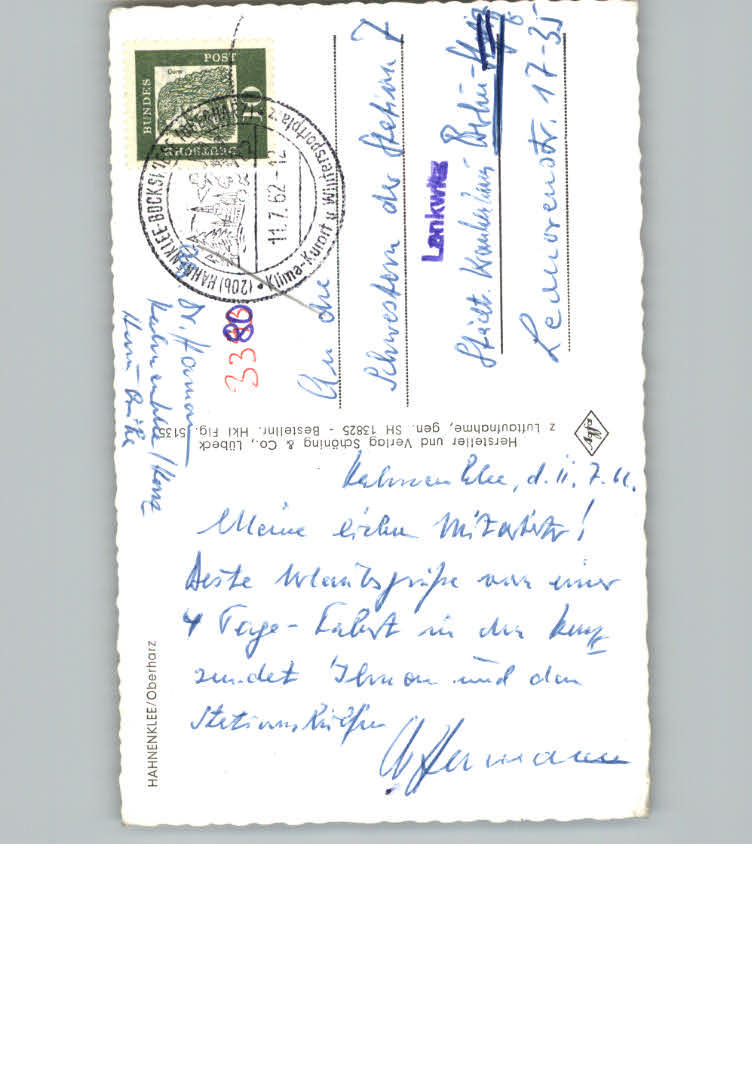 Hahnenklee, d. 11. 7. 62.
Meine lieben Mitarbeiter!
Beste Urlaubsgrüße von einer
4 Tage-Fahrt in den Harz
sendet Ihnen und den
Stationshilfen
Hermann
HAHNENKLEE/Oberharz
Hersteller und Verlag Schöning & Co., Lübeck
z Luftaufnahme, gen. SH 13825 - Bestellnr. Hkl Fig. 5135
Dr. Hermann
Hahnenklee/Harz
3380
BUNDES
POST
DEUTSCHE
10
(20b) HAHNENKLEE-BOCKSWIESE (OBERHARZ)
• Klima-Kurort u. Wintersportplatz
11.7.62-12
An die
Schwestern der Station 7
Lankwitz
Städt. Krankenhaus Berlin-
Leonorenstr. 17-35